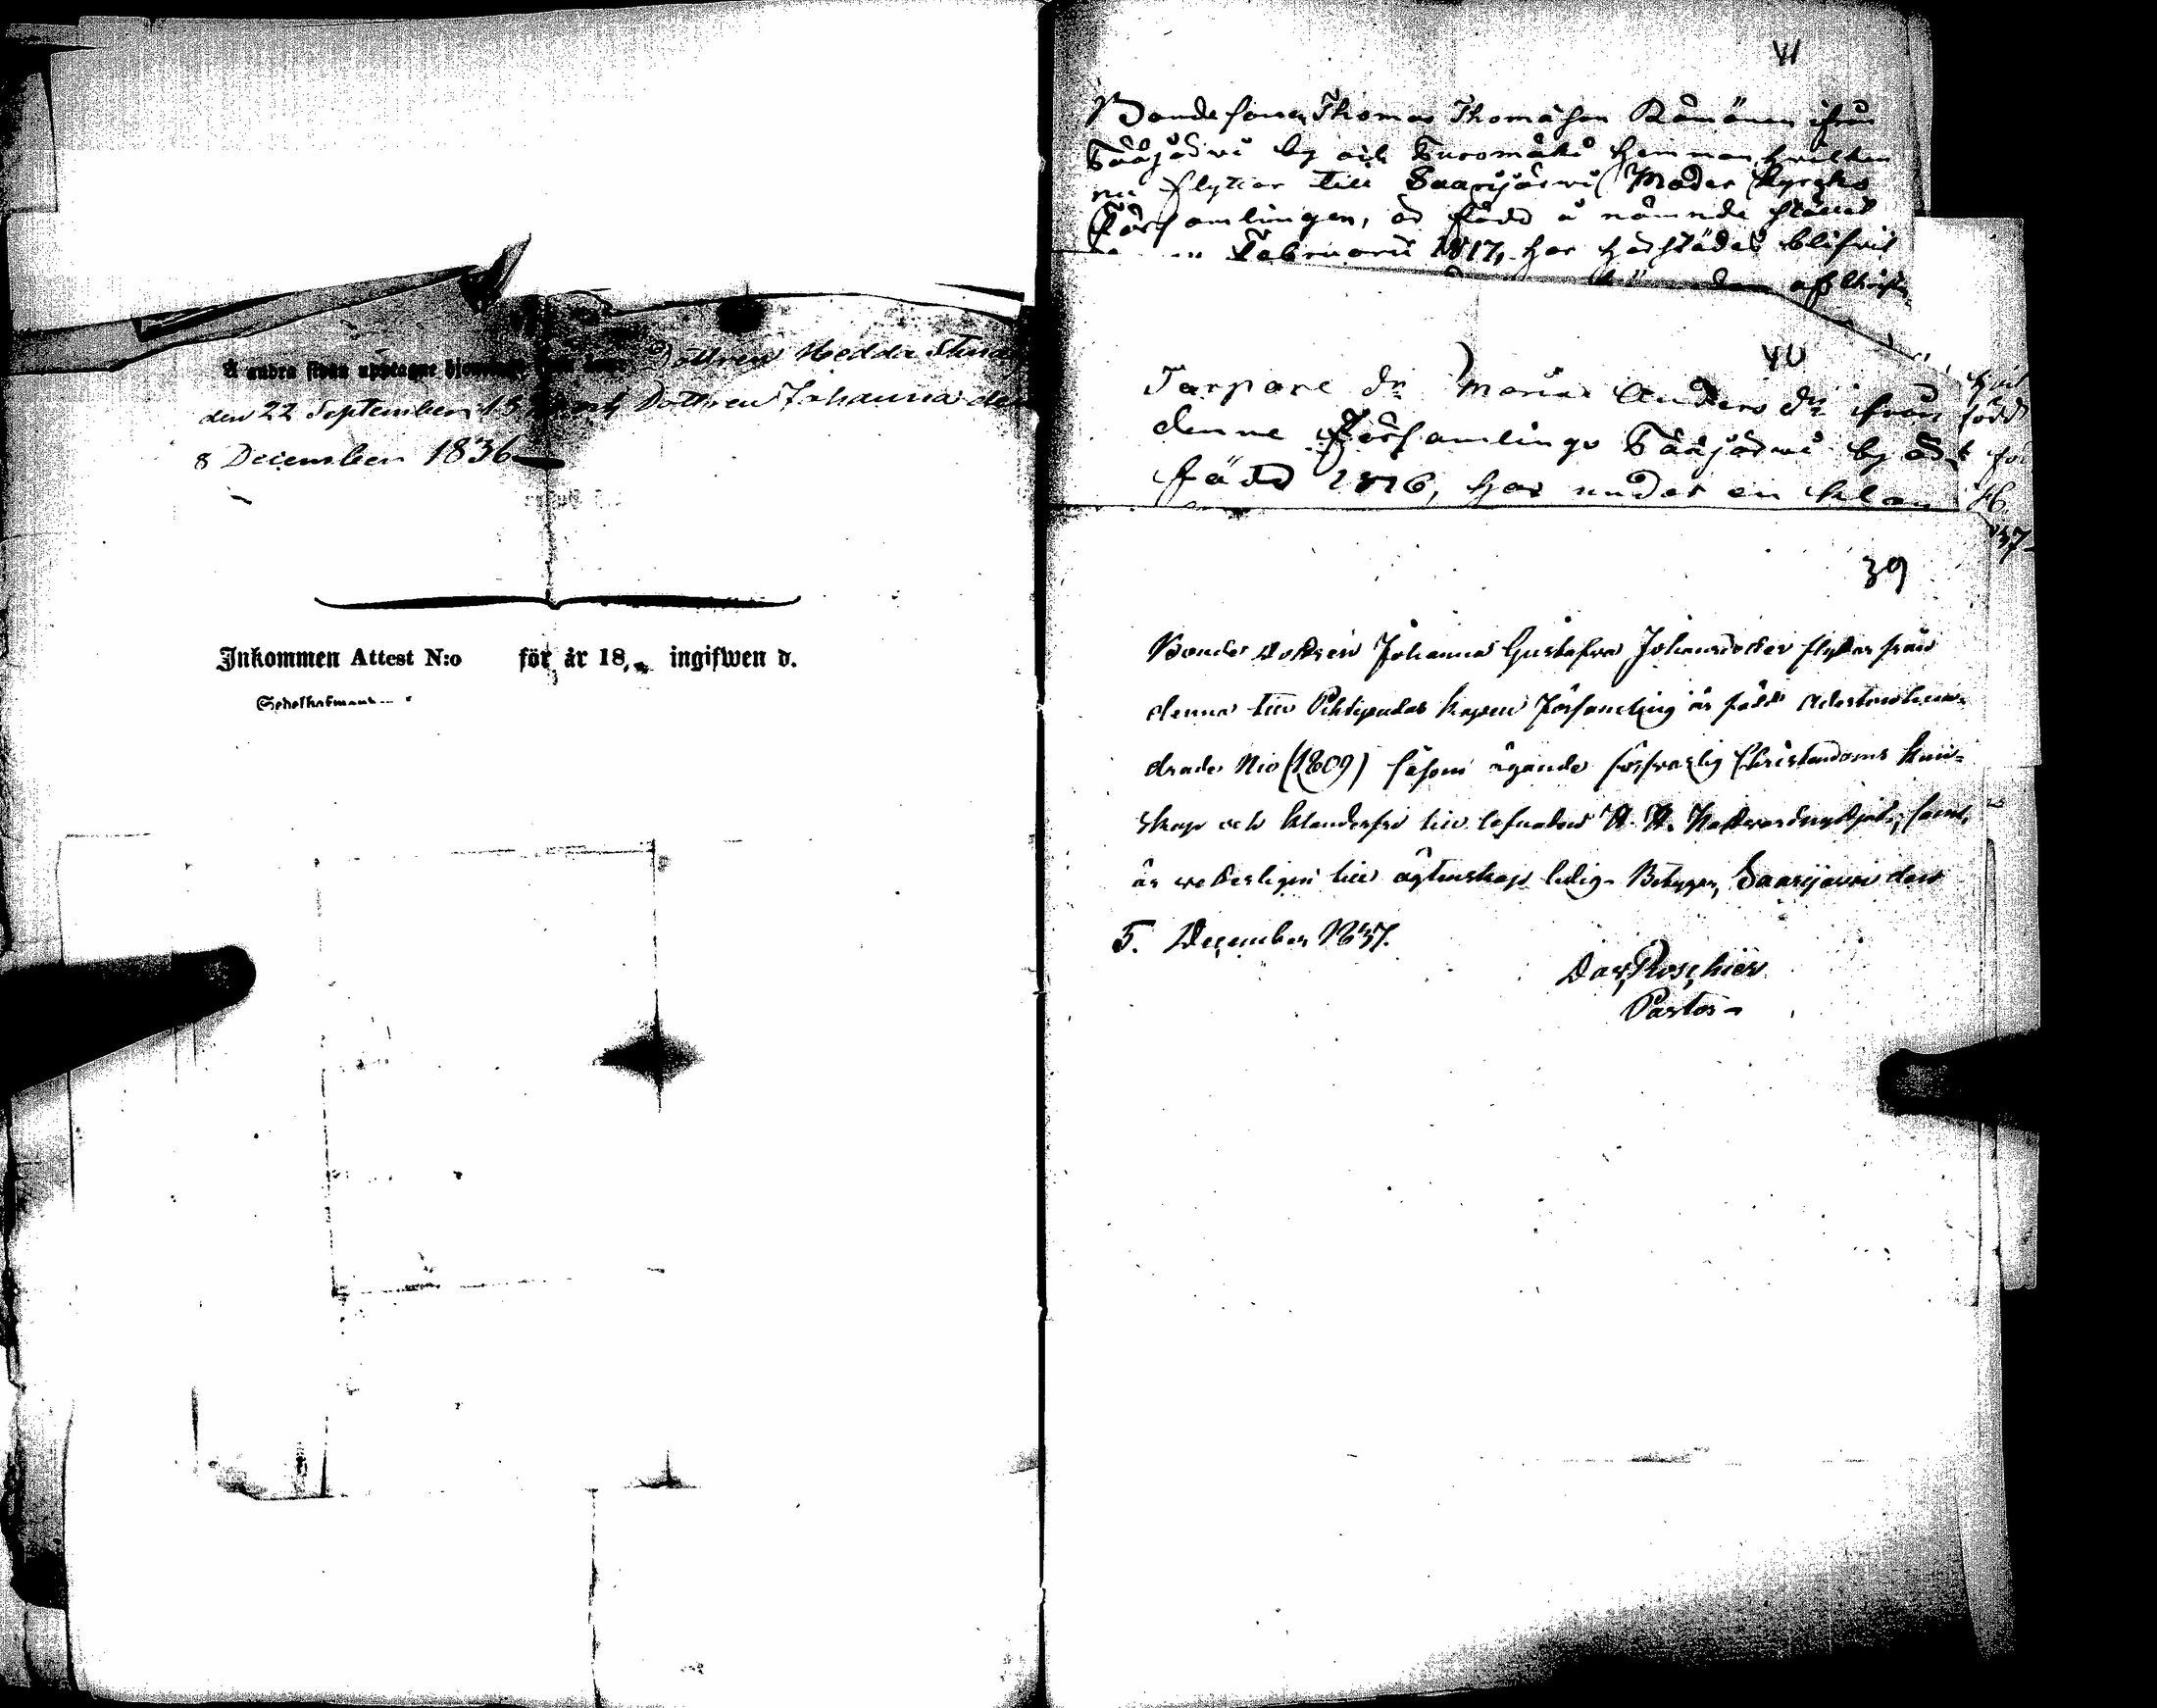 Å andra sidan upptagne Döttren Hedda Stina
den 22 September 18 och Dottren Johanna den
8 December 1836
Inkommen Attest N:o för år 18 ingifwen d.
41
Bondesonen Thomas Thomasson ifrån
Pääjärwi by och Puromäki hemman, hwilken
nu flyttar till Saarijärwi Moder Kyrko
Församlingen, är född å nämnde ställe
Februarii 1817, har härstädes blifvit
40
Torpare dr Maria Anders dr ifrån
denne Församlings Pääjärwi by är
född 1816, har under en klan
född
37
39
Bonde Dottren Johanna Gustafva Johansdotter flyttar från
denna till Pihtipudas Kapell Församling är född Adertonhun-
drade Nio (1809) såsom ägande försvarlig Christendoms kun-
skap och klanderfri till lefnaden H. H. Nattvard begått, samt
är wetterligen till ägtenskap ledig. Betygar, Saarijärwi den
5. December 1837.
Dav. Roschier
Pastor